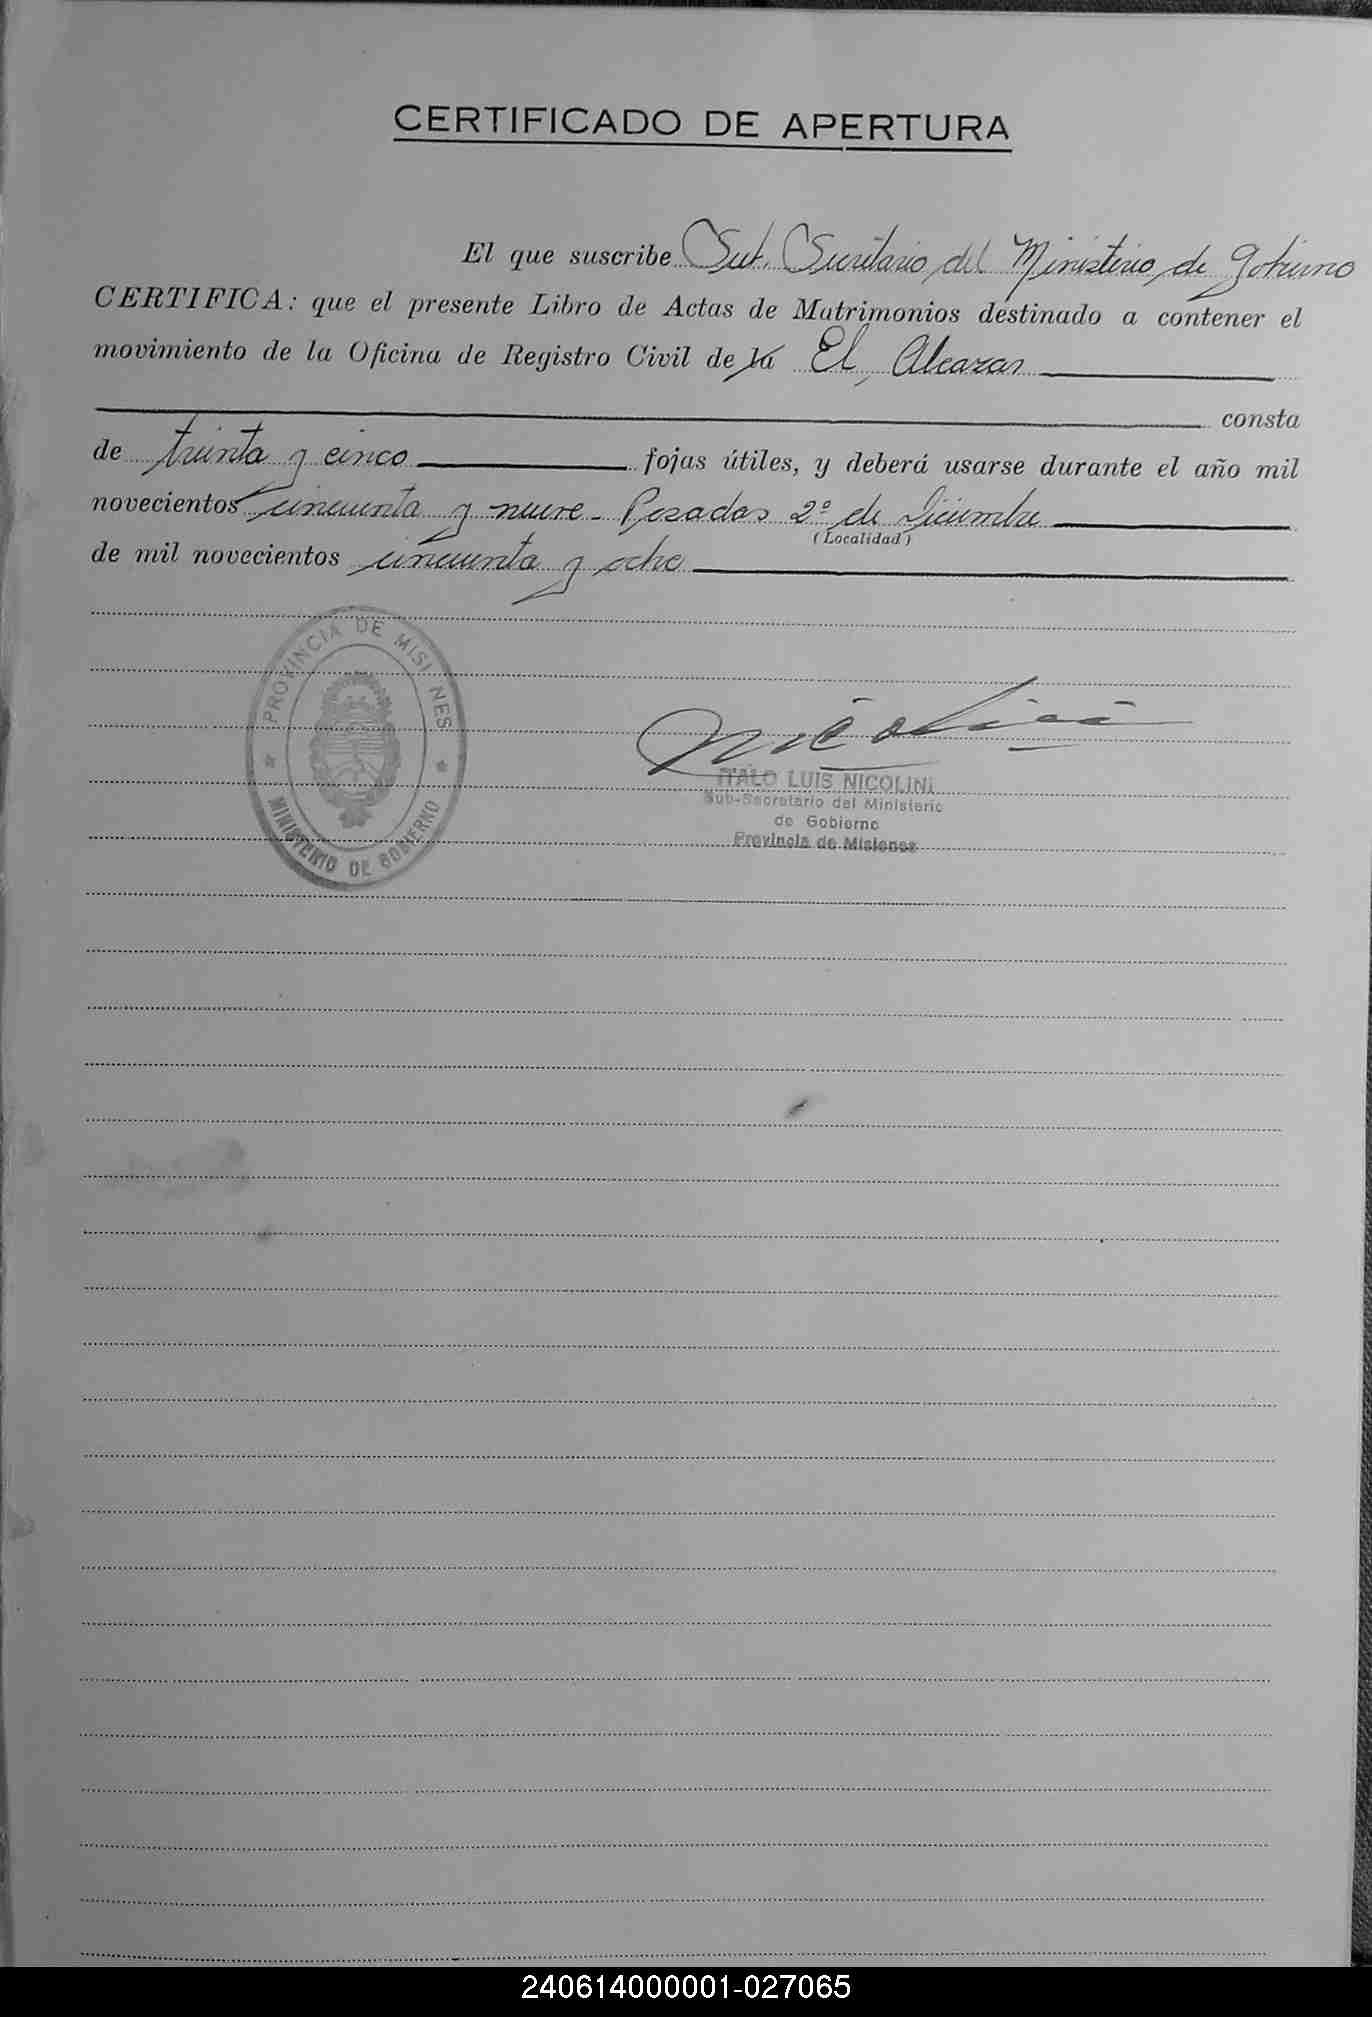 CERTIFICADO DE APERTURA
El que suscribe Sub. Secretario del Ministerio de Gobierno
CERTIFICA: que el presente Libro de Actas de Matrimonios destinado a contener el
movimiento de la Oficina de Registro Civil de la El Alcazar
consta
de treinta y cinco fojas útiles, y deberá usarse durante el año mil
novecientos cincuenta y nueve - Posadas 2º de Diciembre
(Localidad)
de mil novecientos cincuenta y ocho
PROVINCIA DE MISI NES
MINISTERIO DE GOBIERNO
Nicolini
ITALO LUIS NICOLINI
Sub-Secretario del Ministerio
de Gobierno
Provincia de Misiones
240614000001-027065